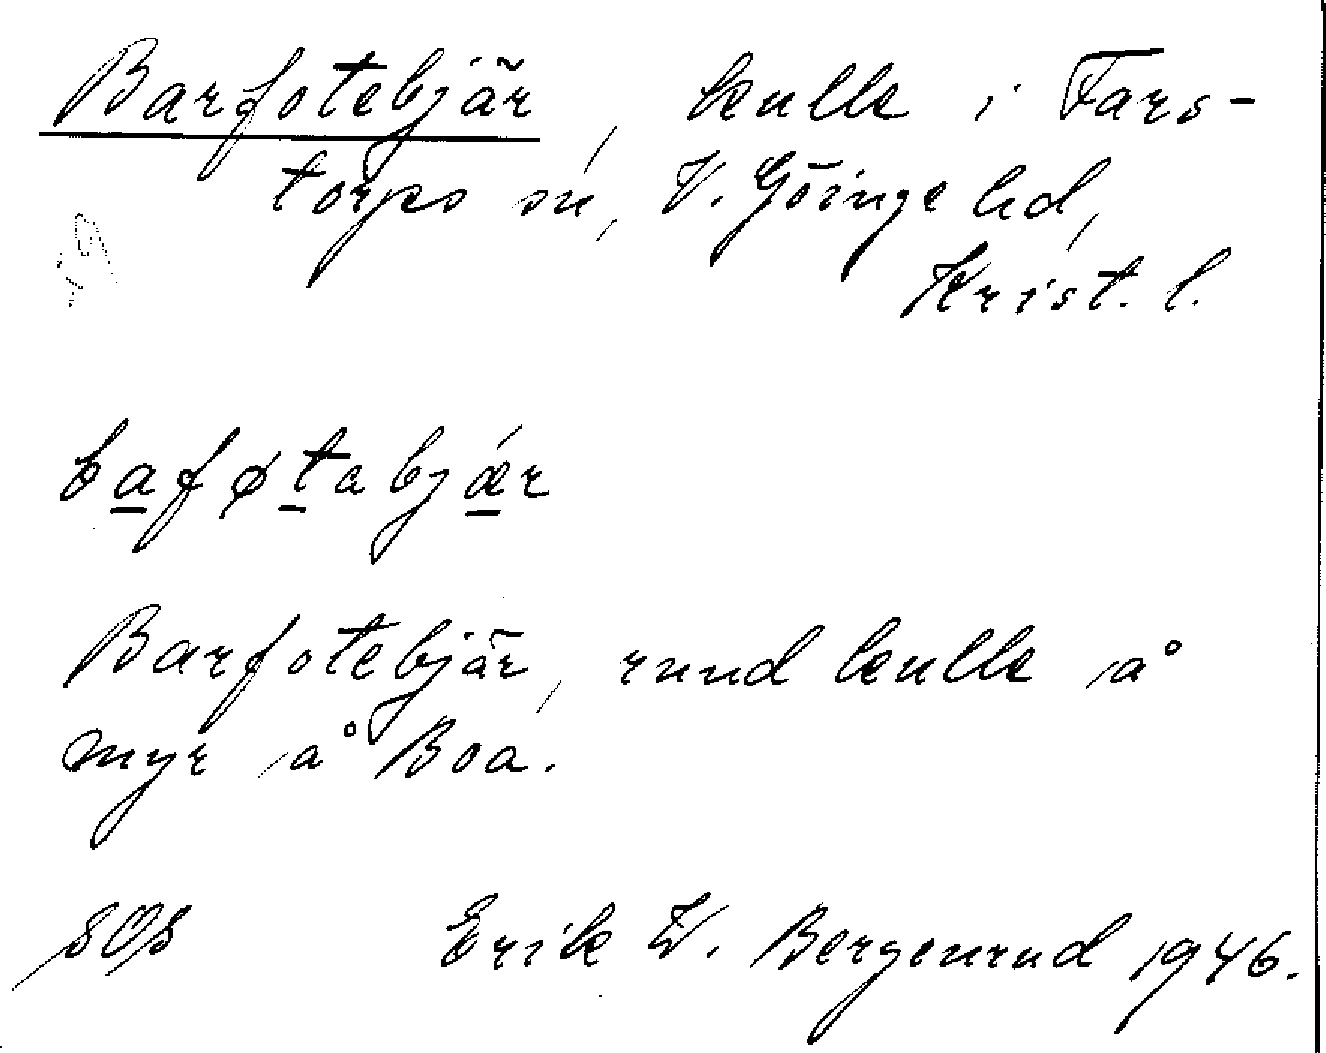 Barfotebjär, kulle i Fars-
torps sn, V. Göinge hd,
Krist. l.
baføtabjǽr
Barfotebjär, rund kulle å
myr å Boa.
SOS Erik W. Bergenrud 1946.